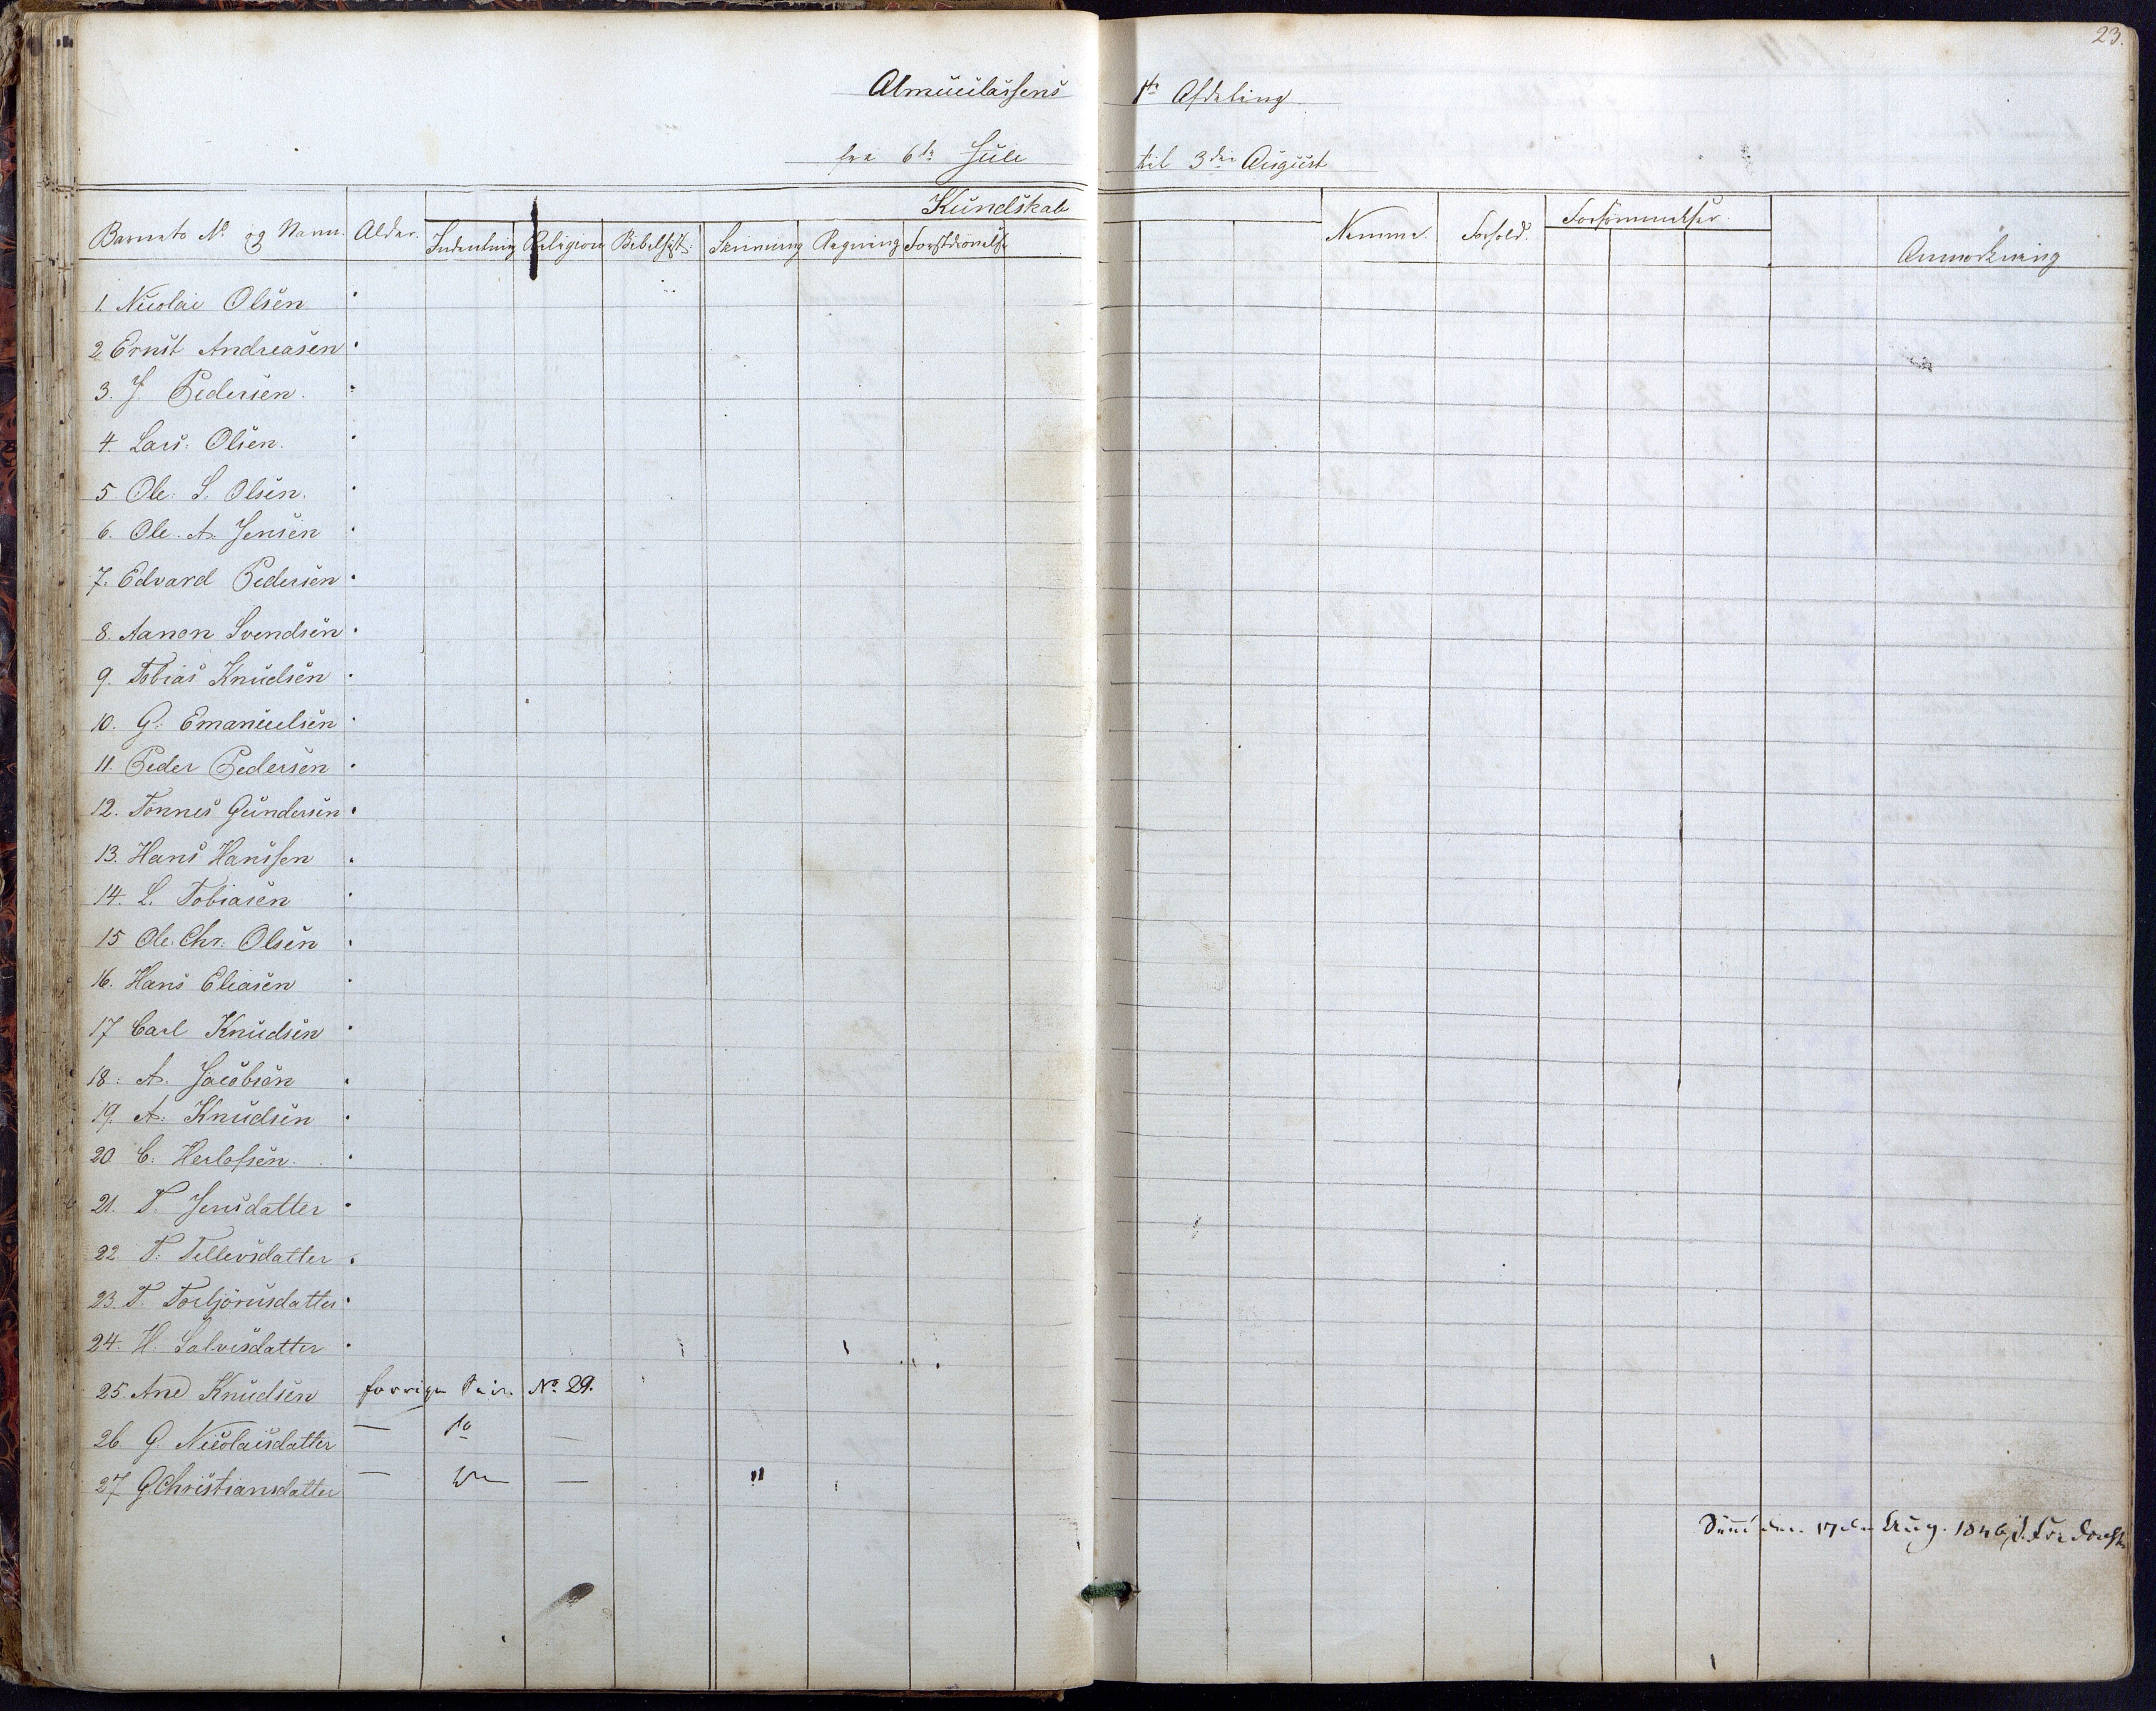 23.
Almueclassens 1te Afdeling.
fra 6te Juli til 3die August
Kundskab
Barnets No og Navn. Alder. Indenlæsning Religion Bibelhist: Skrivning Regning Forstdsøvelse Nemme. Forhold. Forsømmelser. Anmærkning
1. Nicolai Olsen
2 Ernst Andreasen
3. J. Pedersen.
4. Lars: Olsen.
5. Ole. S. Olsen.
6. Ole. A. Jensen
7. Edvard Pedersen
8. Aanon Svendsen
9. Tobias Knudsen
10. G. Emanuelsen
11. Peder Pedersen
12. Tønnes Gundersen
13. Hans Hanssen
14. L. Tobiasen
15 Ole. Chr. Olsen
16. Hans Eliasen
17 Carl Knudsen
18. A. Jacobsen
19. A. Knudsen
20. C. Herlofsen.
21. T. Jensdatter
22. T. Tellevsdatter
23. T. Torbjörnsdatter
24. H. Salvesdatter
25. Ane Knudsen forrige No 29.
26. G. Nicolaisdatter — —
27 G. Christiansdatter — — "
17de Aug. 1846